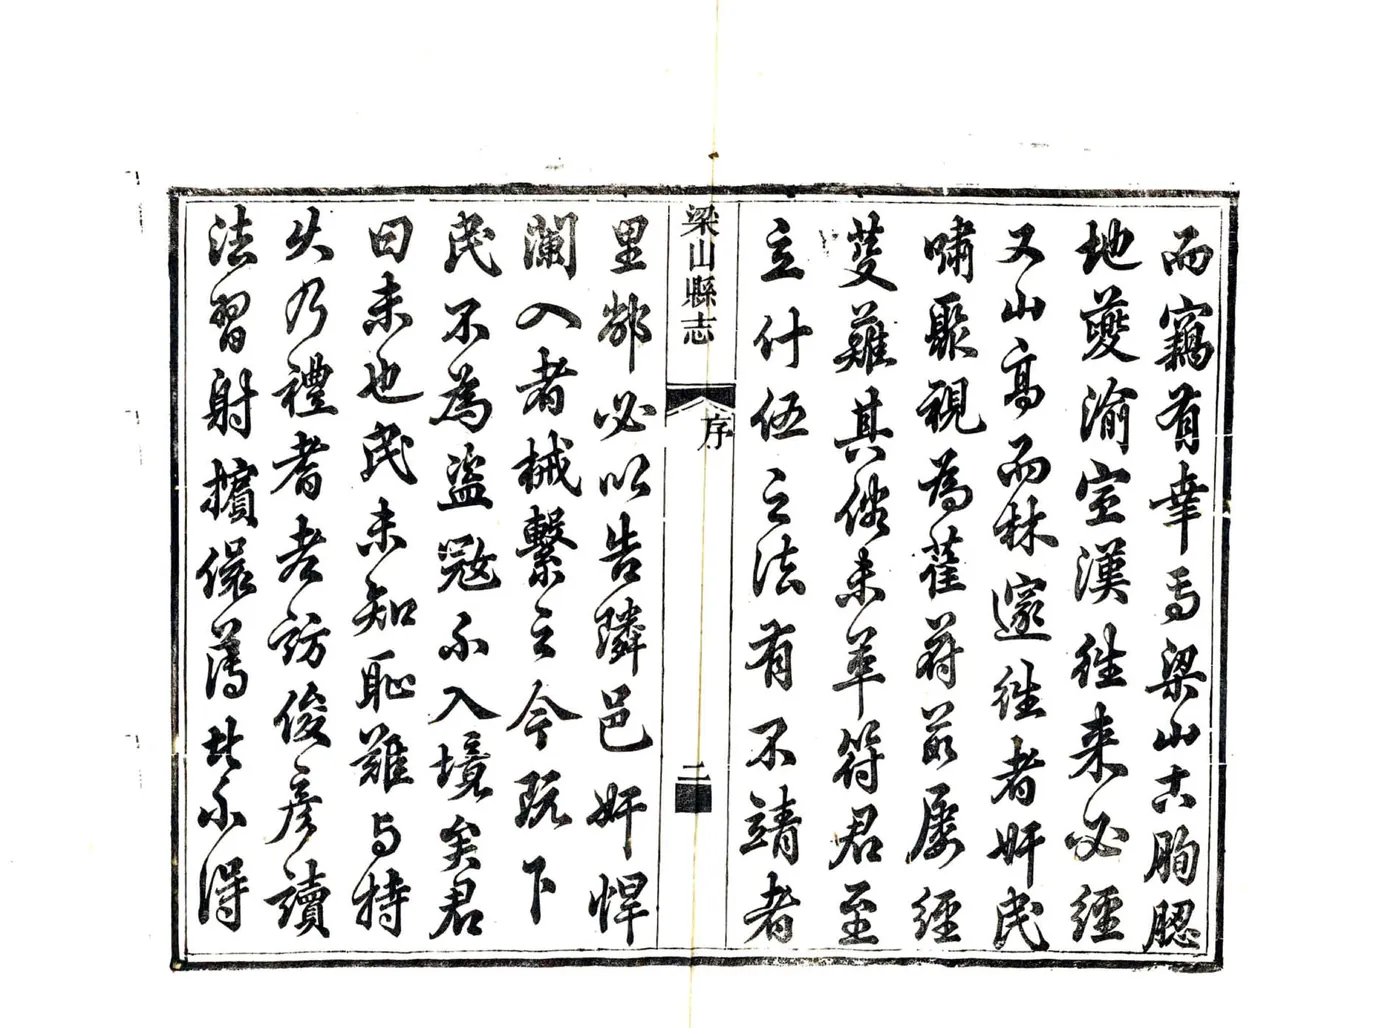 而竊有幸焉梁山古朐䏰
地夔渝宣漢往來必經
又山高而林邃往者奸民
嘯聚視為萑苻前屢經
芟薙其俗未革符君至
立什伍之法有不靖者
梁山縣志
序
二
里鄰必以告隣邑奸悍
瀾入者械繫之今既下
民不為盜寇不入境矣君
曰未也民未知恥難与持
久乃禮耆老訪俊彥讀
法習射擯儇薄不得